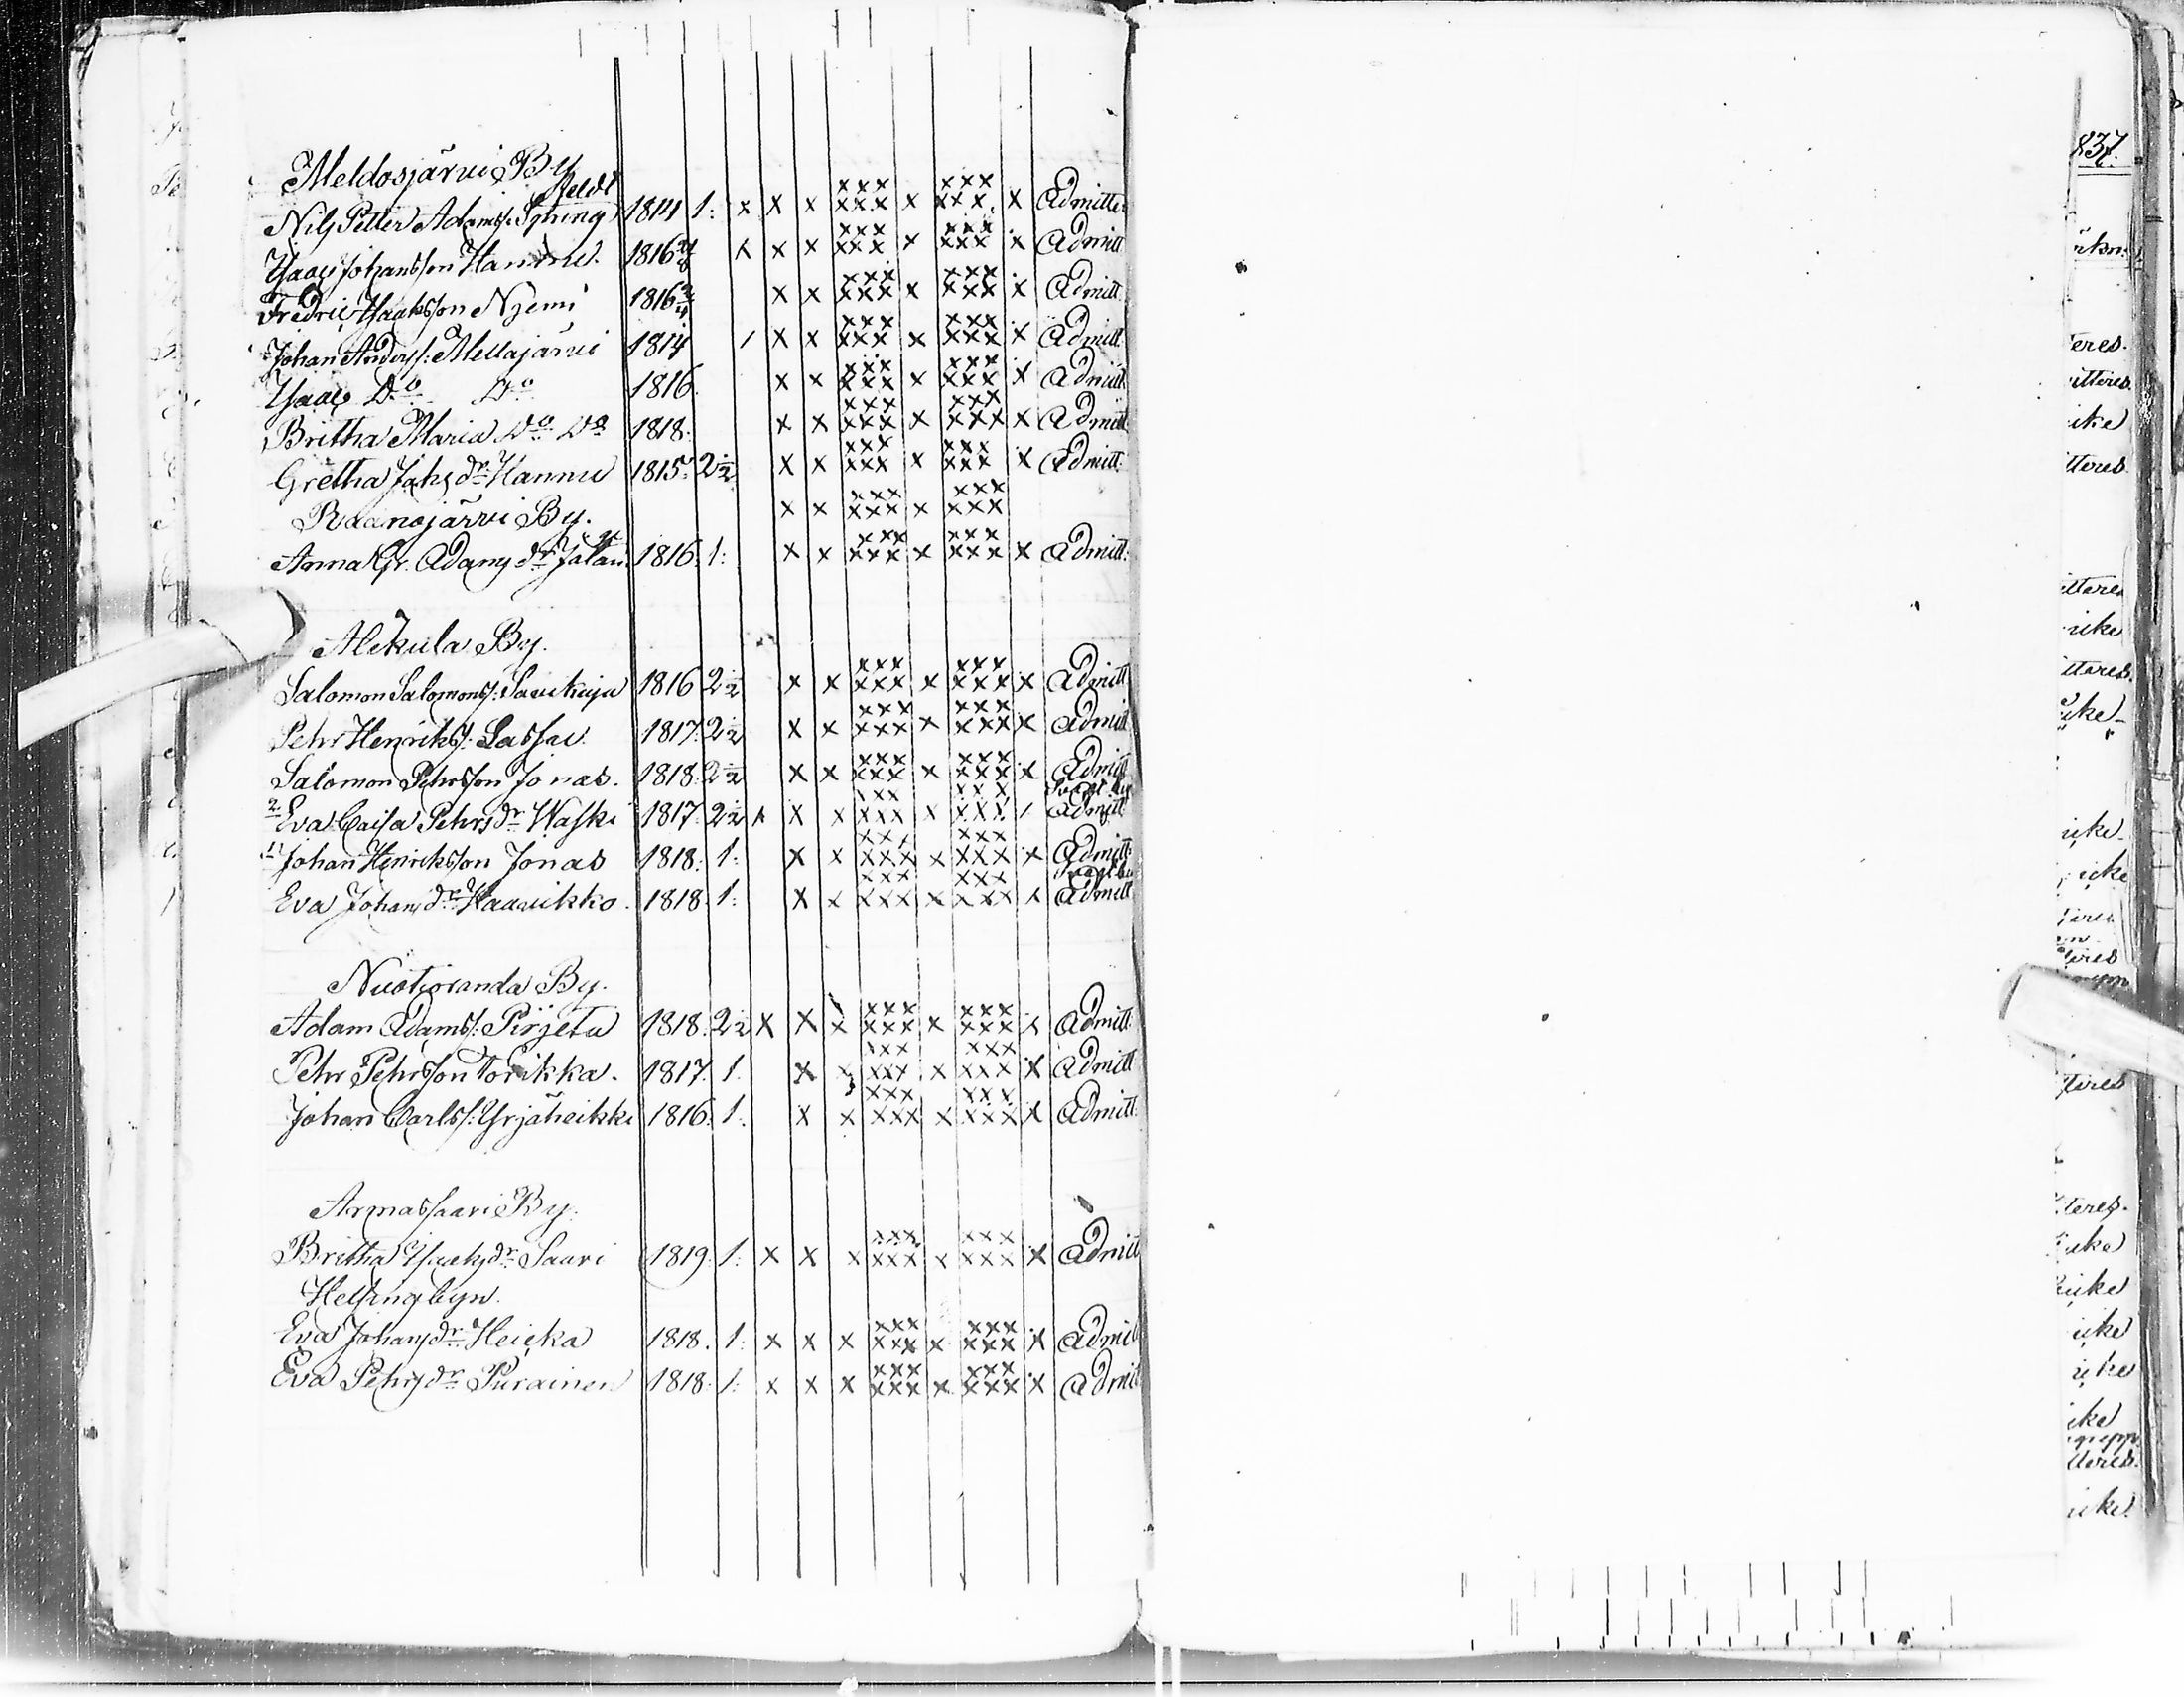 Meldosjärvi By
feldt
Nils Petter Adams: Spring 1814 1: x x x xxx xxx x xxx xxx x Admitte
Isaac Johansson Hannu. 1816 x x x xxx xxx x xxx xxx x Admitt
Fredric Isaksson Njemi 1816 x x xxx xxx x xxx xxx x Admitt
Johan Anderss: Mellajärvi 1814 / x x xxx xxx x xxx xxx x Admitt
Isaac Do Do 1816. x x xxx xxx x xxx xxx x Admitt
Britha Maria Do Do 1818: x x xxx xxx x xxx xxx x Admitt
Gretha Johsdr Hannu 1815. 2 1/2 x x xxx xxx x xxx xxx x Admitt:
Raanojärvi By. x x xxx xxx x xxx xxx
Anna Gr. Adamsdr 1816. 1: x x xxx xxx x xxx xxx x Admitt:
Alekula By.
Salomon Salomons: Savikuja 1816 2 1/2 x x xxx xxx x xxx xxx x Admitt
Pehr Henrikss: Lassai. 1817. 2 1/2 x x xxx xxx x xxx xxx x Admitt
Salomon Pehrsson Jonas. 1818. 2 1/2 x x xxx xxx x xxx xxx x Admitt
2 Eva Caisa Pehrsdr Waski 1817. 2 1/2 x x x xxx xxx x xxx xxx / Admitt
1 Johan Henriksson Jonas 1818: 1: x x xxx xxx x xxx xxx x Admitt:
Eva Johansdr Haavikko. 1818. 1: x x xxx xxx x xxx xxx x Admitt
Nuotioranda By.
Adam Adams: Pirjeta 1818. 2 1/2 x x x xxx xxx x xxx xxx x Admitt:
Pehr Pehrsson Torikka. 1817. 1. x x xxx xxx x xxx xxx x Admitt
Johan Carlss: Yrjäheikki 1816. 1: x x xxx xxx x xxx xxx x Admitt:
Armassaari By.
Britha Isaksdr Saari 1819. 1: x x x xxx xxx x xxx xxx x Admitt
Helsingbyn.
Eva Johansdr Heicka 1818. 1: x x x xxx xxx x xxx xxx x Admit
Eva Pehrsdr Purainen 1818: 1: x x x xxx xxx x xxx xxx x Admit
837.